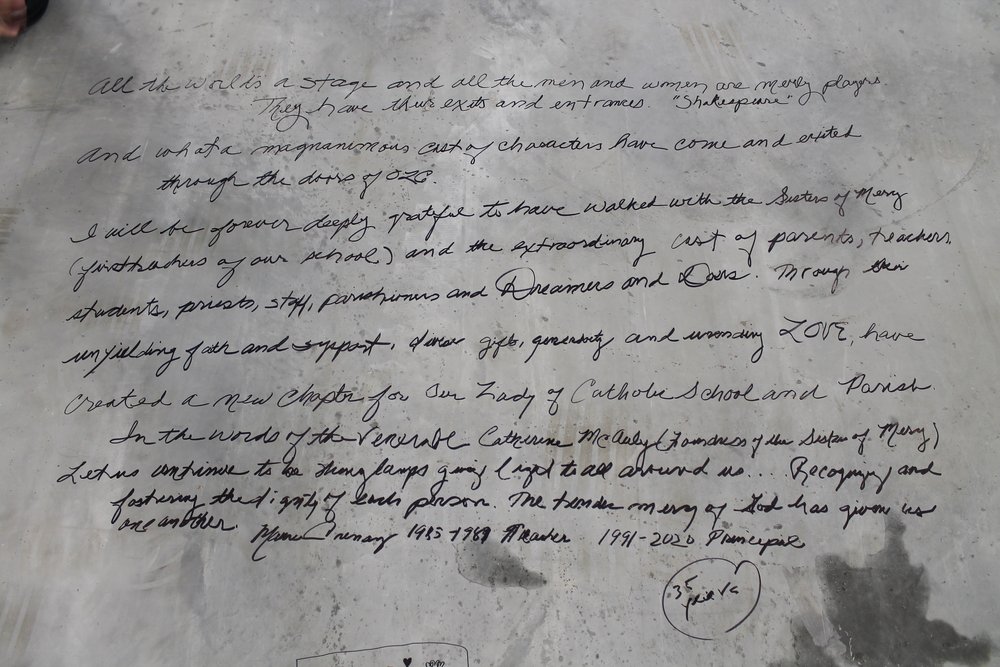 All the world's a stage and all the men and women are merely players.
They have their exits and entrances. "Shakespeare"
And what a magnanimous cast of characters have come and exited
through the doors of OLG.
I will be forever deeply grateful to have walked with the Sisters of Mercy
(first teachers of our school) and the extraordinary cast of parents, teachers,
students, priests, staff, parishioners and Dreamers and Doers. Through their
unyielding faith and support, diverse gifts, generosity and unending LOVE, have
created a new chapter for Our Lady of Catholic School and Parish.
In the words of the Venerable Catherine McAuley (Foundress of the Sisters of Mercy)
Let us continue to be shining lamps giving light to all around us... Recognizing and
fostering the dignity of each person. The tender mercy of God has given us
one another. 1985-1989 Teacher 1991-2020 Principal
35
years